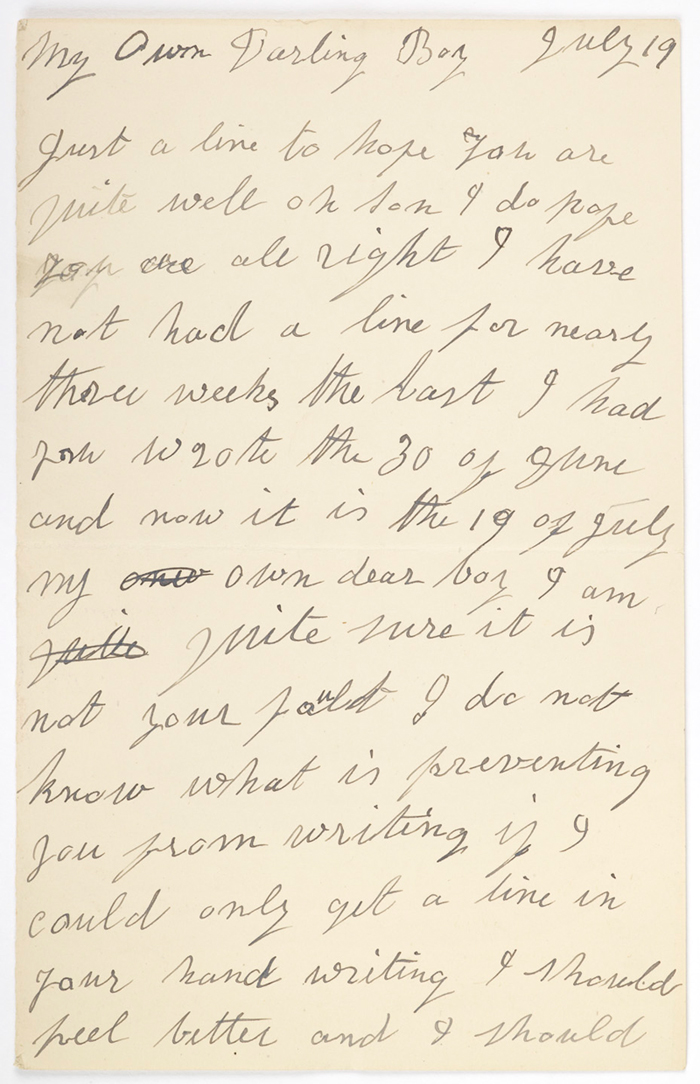 My Own Darling Boy July 19
Just a line to hope you are
quite well oh son I do hope
you are all right I have
not had a line for nearly
three weeks the last I had
you wrote the 30 of June
and now it is the 19 of July
my onw own dear boy I am
quite quite sure it is
not your fault I do not
know what is preventing
you from writing if I
could only get a line in
your hand writing I should
feel better and I should